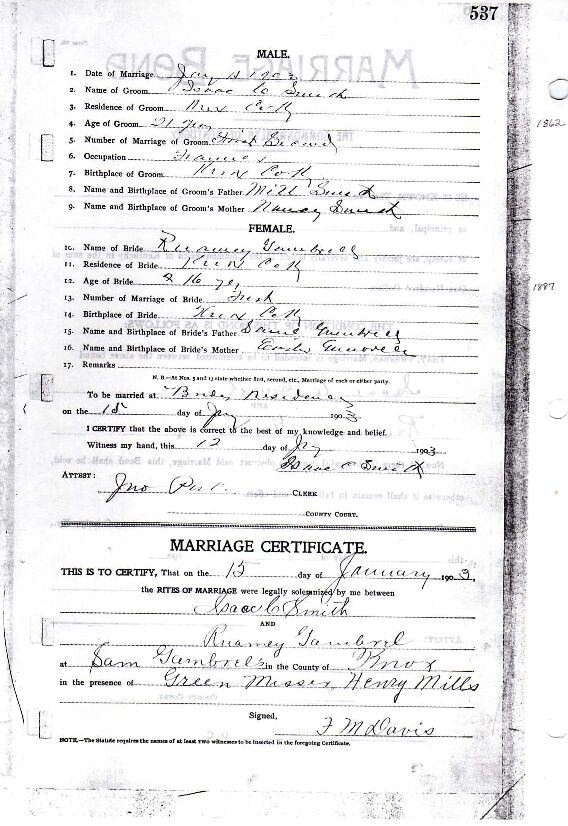 537
MALE.
1. Date of Marriage Jany 15 1903
2. Name of Groom Isaac C Smith
3. Residence of Groom Knox Co Ky
1862
4. Age of Groom
5. Number of Marriage of Groom
6. Occupation
7. Birthplace of Groom Knox Co Ky
8. Name and Birthplace of Groom's Father Mill Smith
9. Name and Birthplace of Groom's Mother Nancy Smith
FEMALE.
10. Name of Bride Ruamey Gambrel
11. Residence of Bride Knox Co Ky
1887
12. Age of Bride
13. Number of Marriage of Bride First
14. Birthplace of Bride Knox Co Ky
15. Name and Birthplace of Bride's Father
16. Name and Birthplace of Bride's Mother
17. Remarks
N. B.—At Nos. 5 and 13 state whether first, second, etc., Marriage of each or either party.
To be married at Brides Residence
on the 15 day of Jny 1903
I CERTIFY that the above is correct to the best of my knowledge and belief.
Witness my hand, this 12 day of Jny 1903
Isaac C Smith
ATTEST:
Jno CLERK
COUNTY COURT.
MARRIAGE CERTIFICATE.
THIS IS TO CERTIFY, That on the 15 day of January 1903,
the RITES OF MARRIAGE were legally solemnized by me between
Isaac C Smith
AND
Ruamey Gambrel
at Sam Gambrels in the County of Knox
in the presence of Green Messer, Henry Mills
Signed,
F M Davis
NOTE.—The Statute requires the names of at least two witnesses to be inserted in the foregoing Certificate.